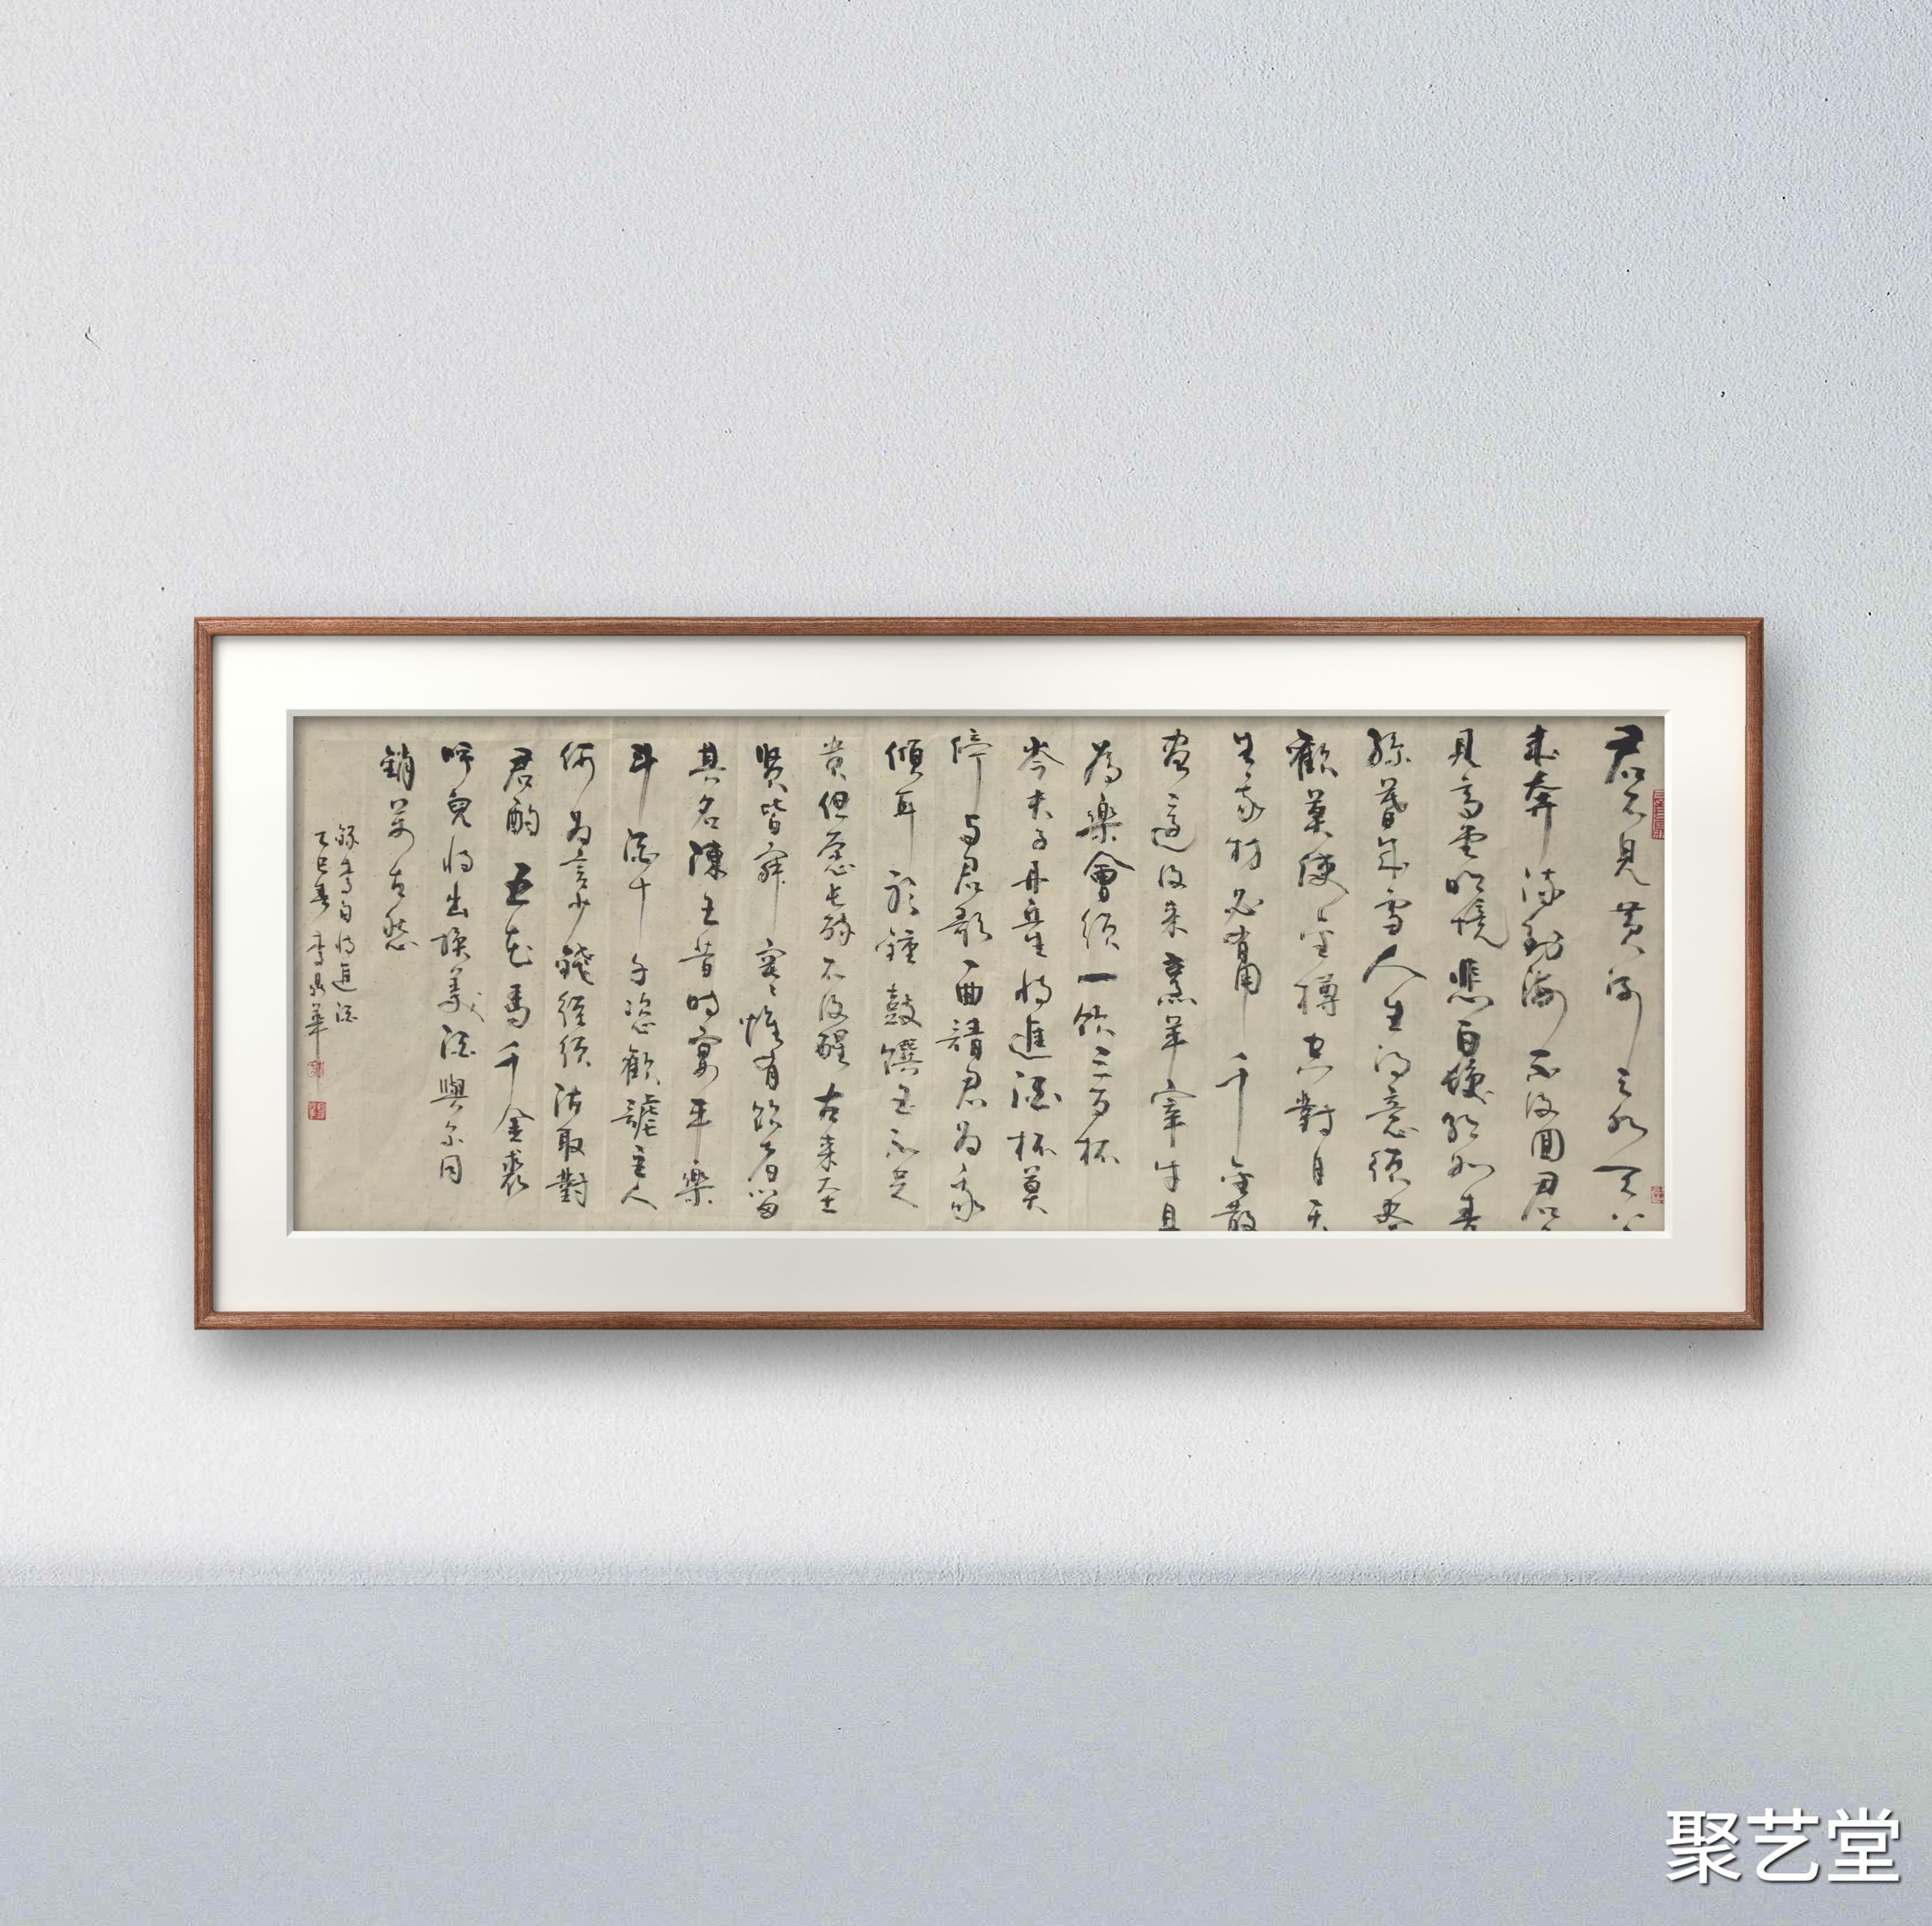 君不見黄河之水天上
来奔流到海不復回君不
見高堂明鏡悲白髮朝如青
絲暮成雪人生得意須盡
歡莫使金樽空對月天
生我材必有用千金散
盡還復来烹羊宰牛且
為樂會須一飲三百杯
岑夫子丹丘生將進酒杯莫
停与君歌一曲請君為我
傾耳聽鐘鼓饌玉不足
貴但願長醉不復醒古来聖
賢皆寂寞惟有飲者留
其名陳王昔時宴平樂
斗酒十千恣歡謔主人
何為言少錢徑須沽取對
君酌五花馬千金裘
呼兒將出換美酒與尔同
銷萬古愁
録李白將進酒
乙巳春李華
聚艺堂